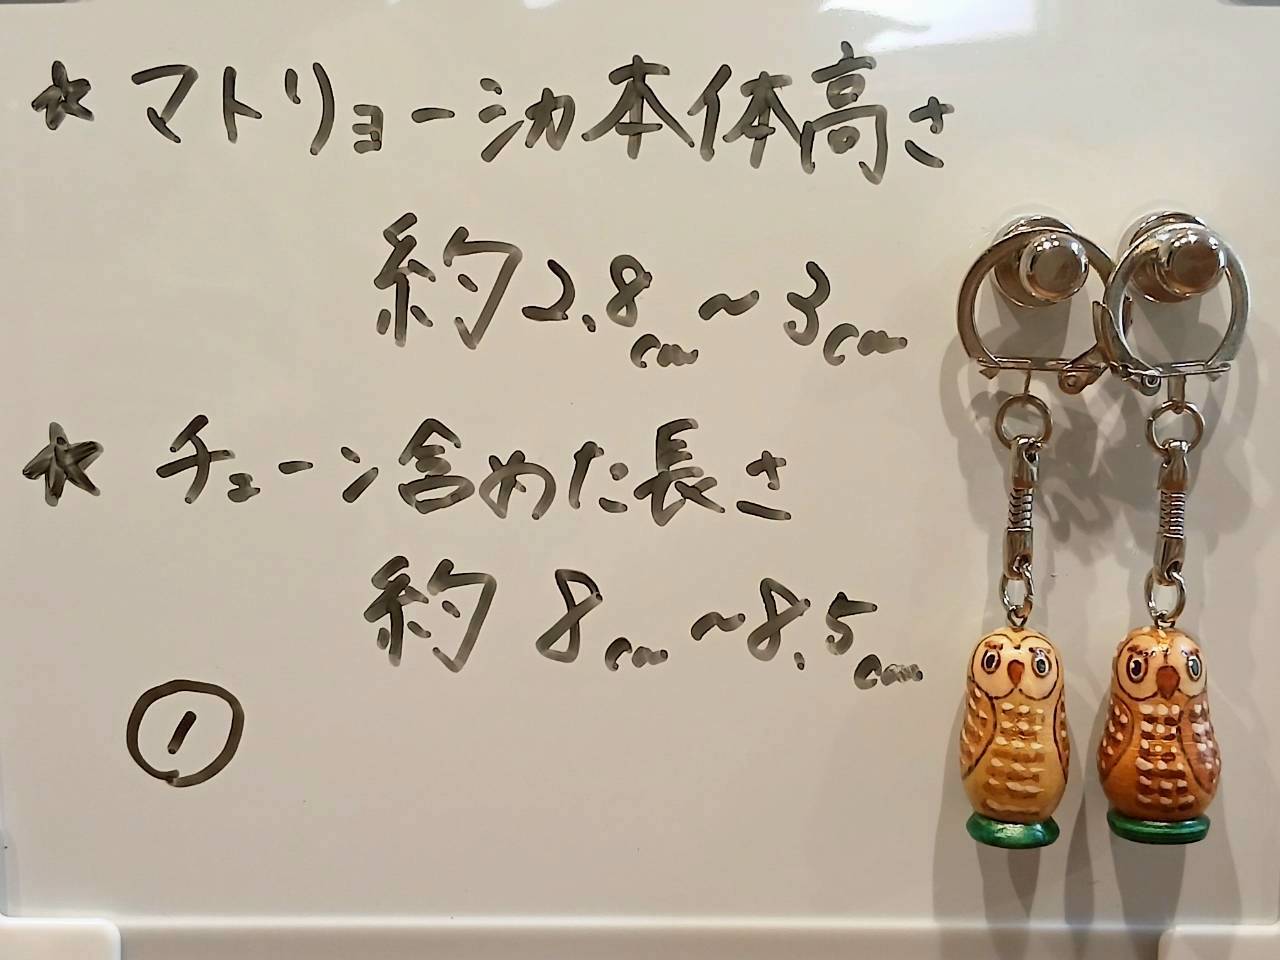 ☆ マトリョーシカ本体高さ
約2.8cm~3cm
☆ チェーン含めた長さ
約 8cm~8.5cm
①